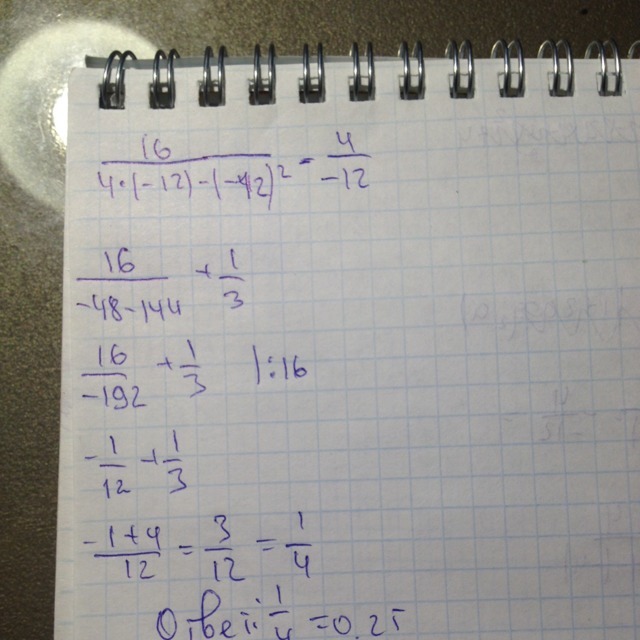 16/(4·(-12)-(-12)²) - 4/-12
16/(-48-144) + 1/3
16/-192 + 1/3 |:16
-1/12 + 1/3
(-1+4)/12 = 3/12 = 1/4
Ответ: 1/4 = 0,25